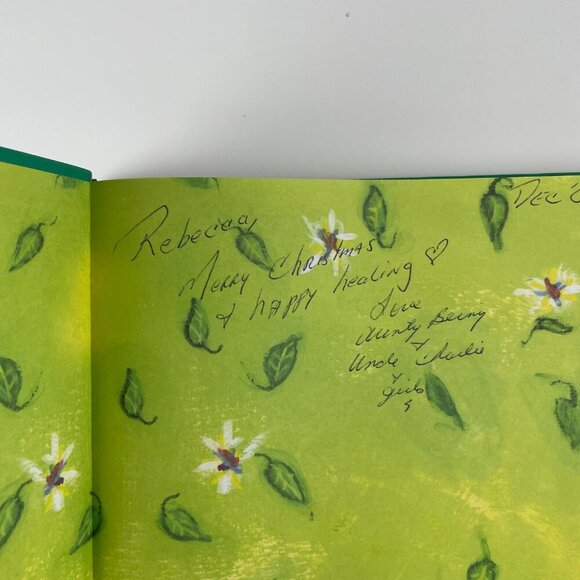 Dec '0
Rebecca,
Merry Christmas
& happy healing ♡
Love
Aunty
Uncle Charlie
+
girls